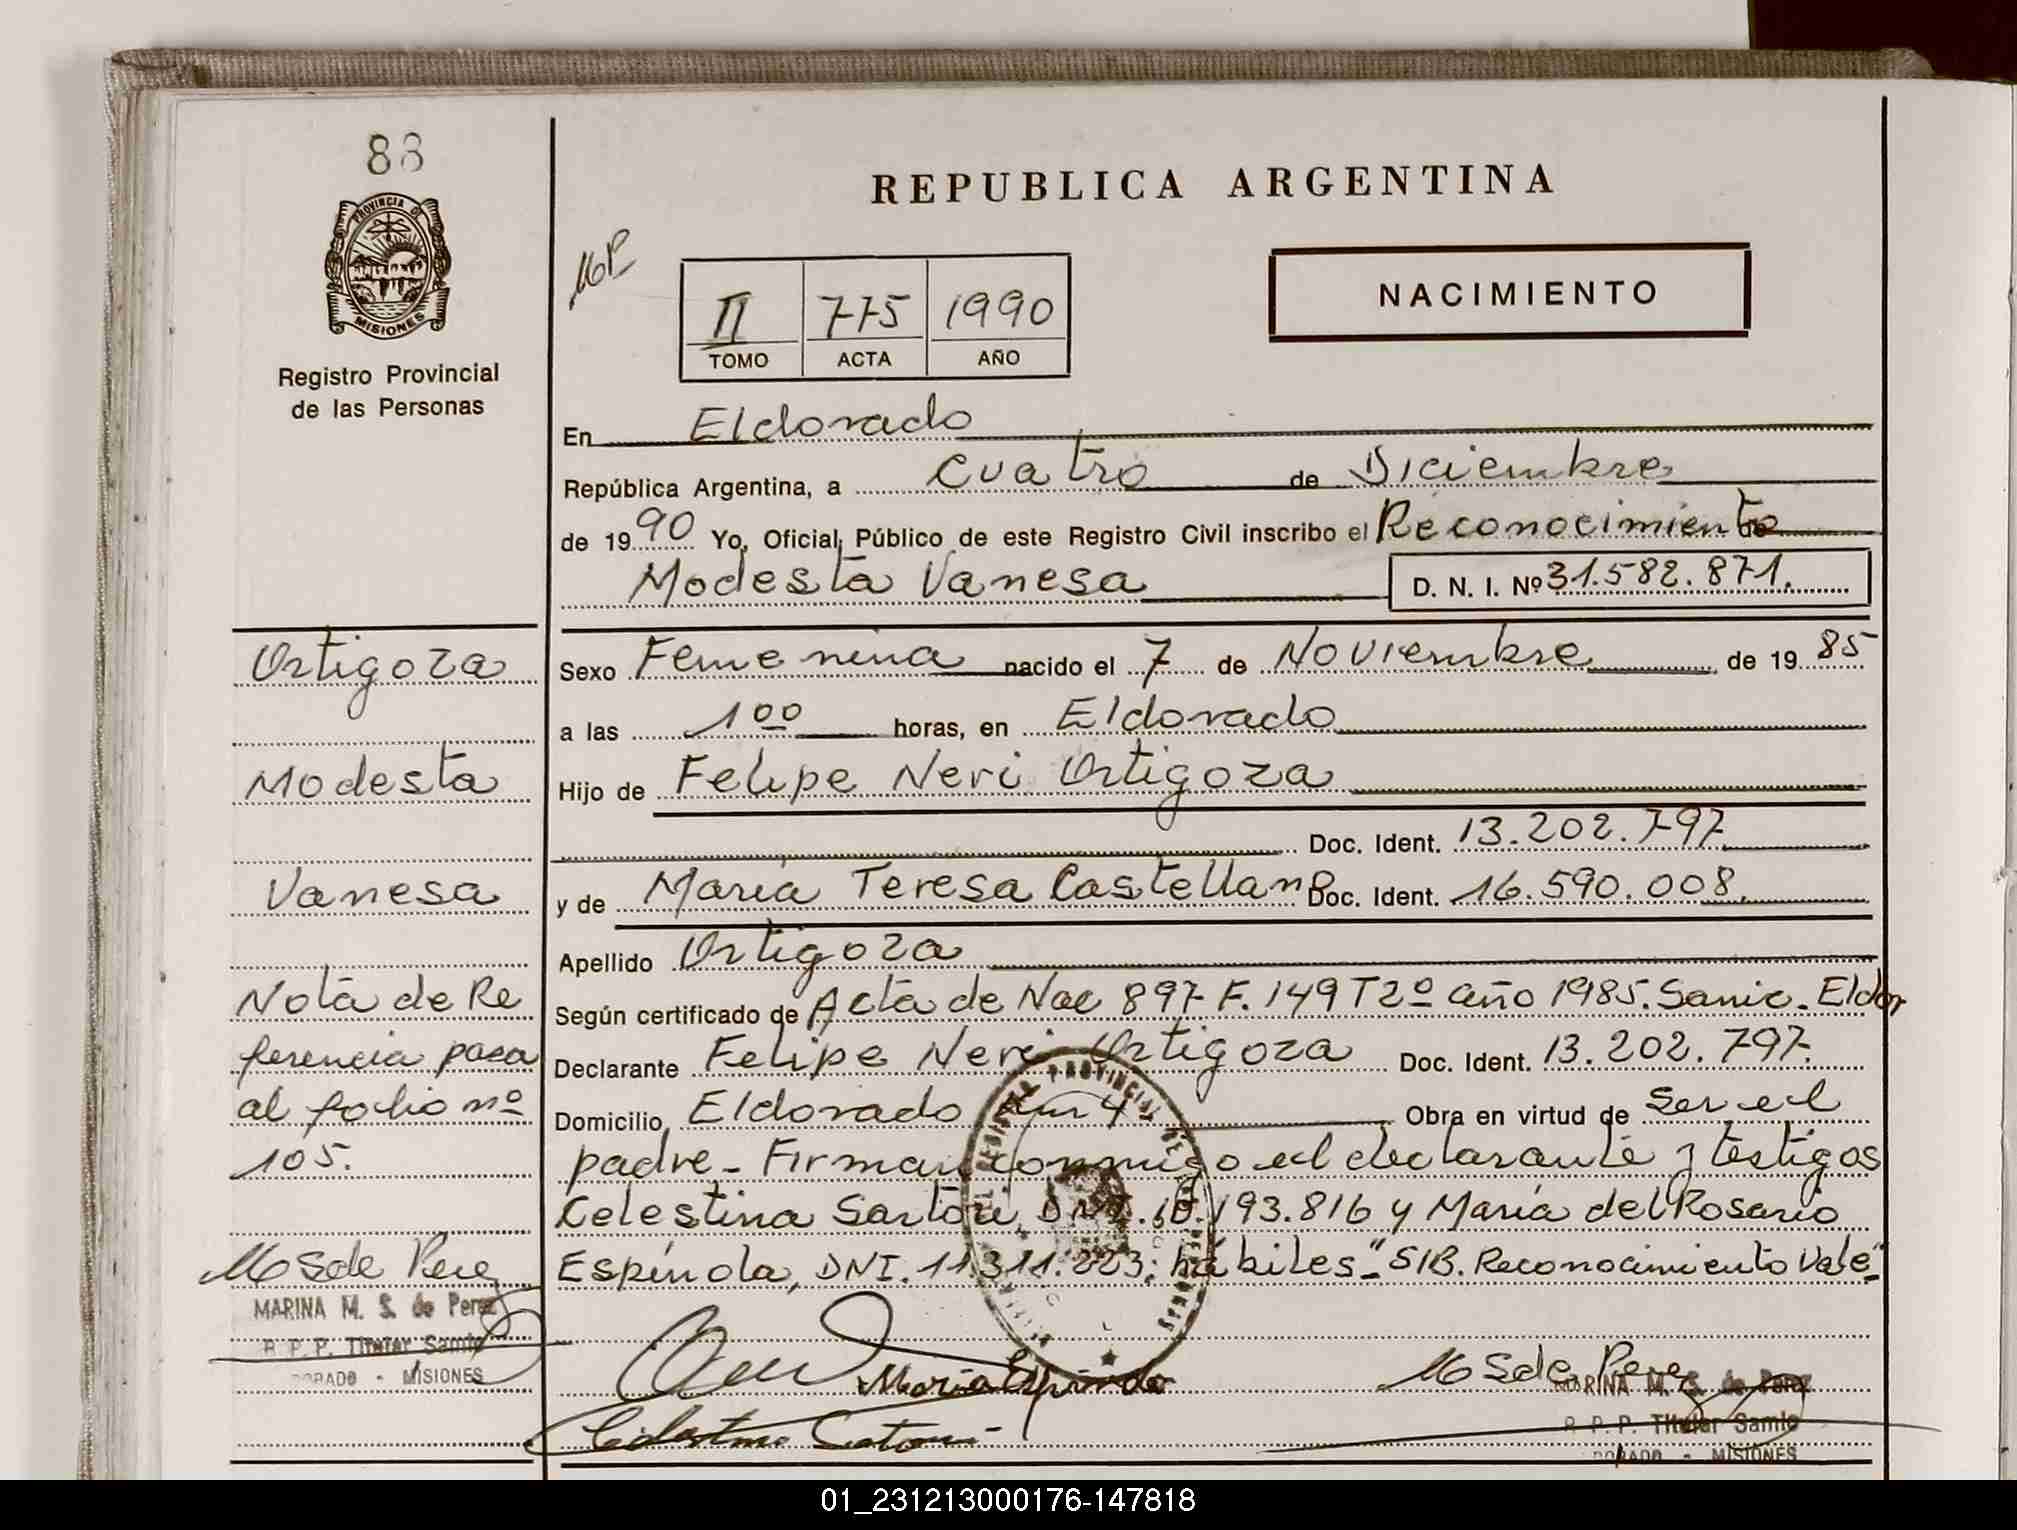 88
PROVINCIA DE
MISIONES
Registro Provincial
de las Personas
REPUBLICA ARGENTINA
NACIMIENTO
II 775 1990
TOMO ACTA AÑO
En Eldorado
República Argentina, a Cuatro de Diciembre
de 1990 Yo, Oficial Público de este Registro Civil inscribo el Reconocimiento de
Modesta Vanesa D. N. I. Nº 31.582.871.
Sexo Femenina nacido el 7 de Noviembre de 1985
a las 1 00 horas, en Eldorado
Hijo de Felipe Neri Ortigoza
Doc. Ident. 13.202.797
y de María Teresa Castellano Doc. Ident. 16.590.008.
Apellido Ortigoza
Según certificado de Acta de Nac 897 F. 149 T 2º año 1985. Samic. Eldor
Declarante Felipe Neri Ortigoza Doc. Ident. 13.202.797.
Domicilio Eldorado Km 4 Obra en virtud de Ser el
padre - Firman conmigo el declarante y testigos
Celestina Sartori, DNI. 193.816 y María del Rosario
Espíndola, DNI. 11.311.223; hábiles - "S/B. Reconocimiento Vale" -
María Espíndola
Celestina Sartori
M S de Perez
MARINA M. S. de Perez
R. P. P. Titular Samic
DORADO - MISIONES
Ortigoza
Modesta
Vanesa
Nota de Re
ferencia pasa
al folio nº
105.
M S de Perez
MARINA M. S. de Perez
R. P. P. Titular Samic
DORADO - MISIONES
01_231213000176-147818